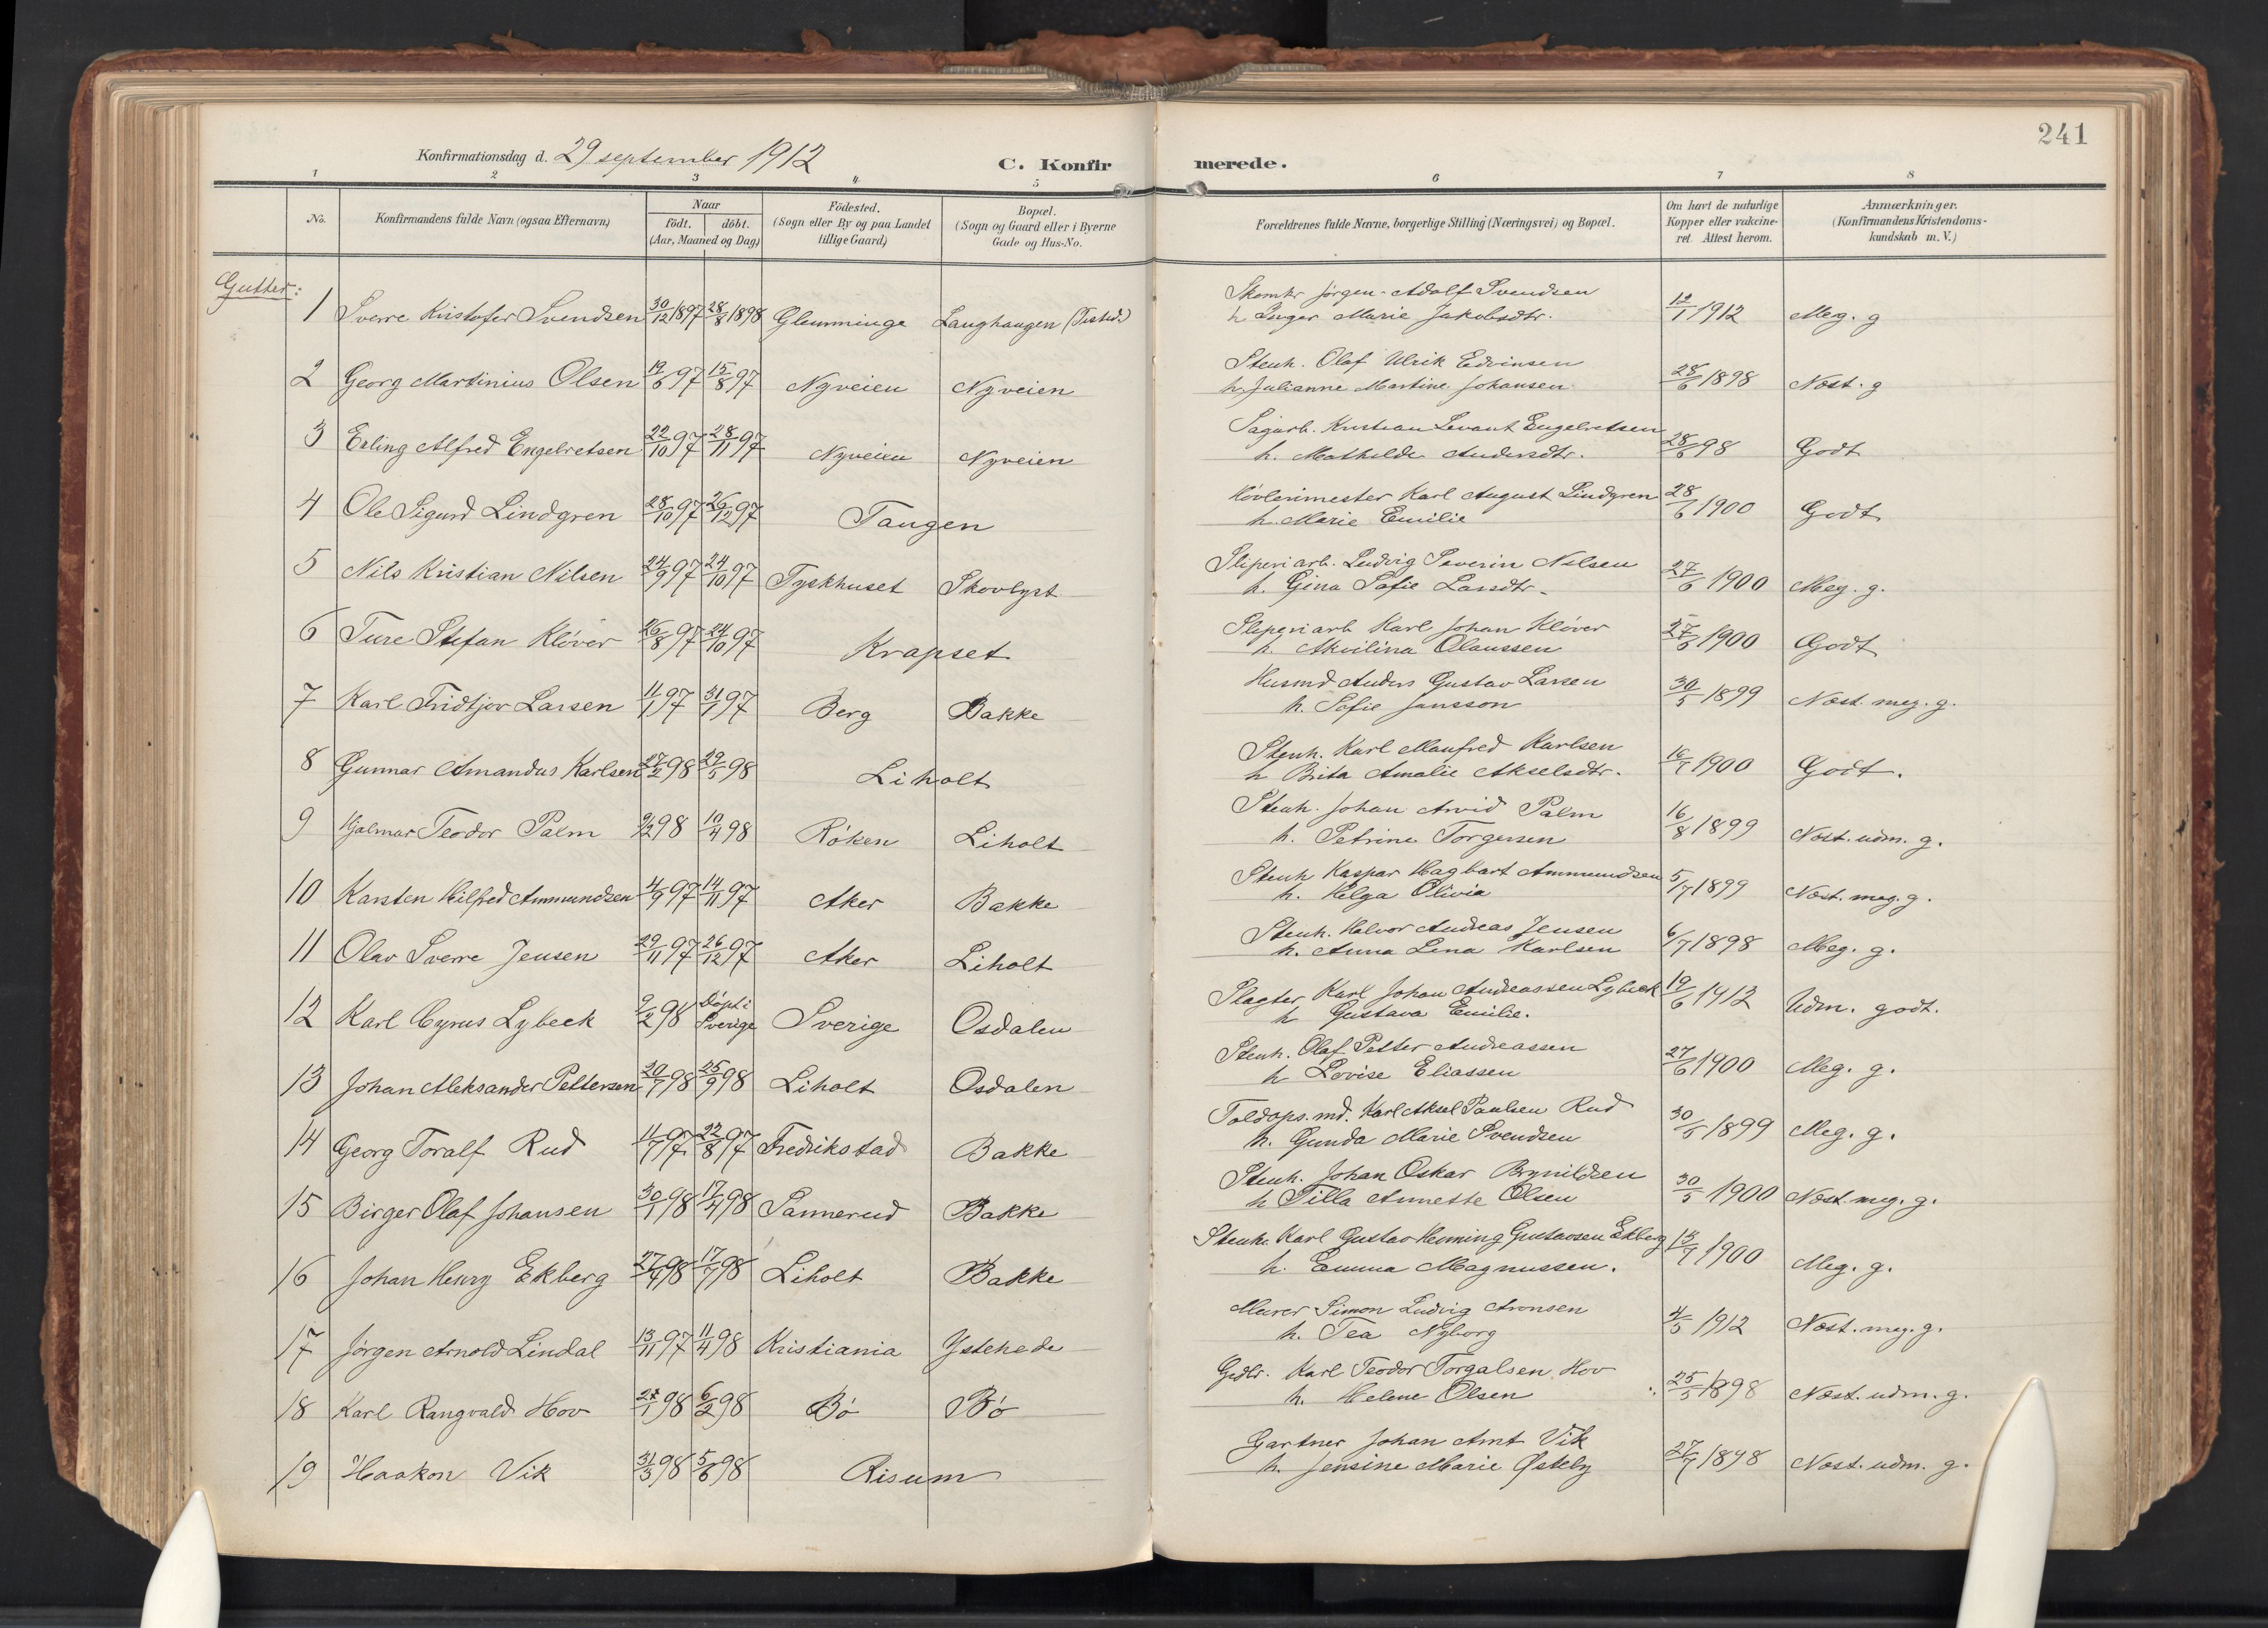 241
Konfirmationsdag d. 29 september 1912
C. Konfirmerede.
1 2 3 4 5 6 7 8
No.
Konfirmandens fulde Navn (ogsaa Efternavn)
Naar
födt. döbt.
(Aar, Maaned og Dag)
Födested.
(Sogn eller By og paa Landet
tillige Gaard)
Bopæl.
(Sogn og Gaard eller i Byerne
Gade og Hus-No.
Forældrenes fulde Navne, borgerlige Stilling (Næringsvei) og Bopæl.
Om havt de naturlige
Kopper eller vakcine-
ret. Attest herom.
Anmærkninger.
(Konfirmandens Kristendoms-
kundskab m. V.)
Gutter:
1 Sverre Kristofer Svendsen 30/12 1897 28/8 1898 Glemminge Langhaugen (Tistedl.) Skomkr Jørgen Adolf Svendsen
h Inger Marie Jakobsdtr. 12/1 1912 Meg. g
2 Georg Martinius Olsen 19/6 97 15/8 97 Nyveien Nyveien Stenh. Olaf Ulrik Edvinsen
h. Julianne Martine Johansen 28/6 1898 Nost. g
3 Erling Alfred Engelvetsen 22/10 97 28/11 97 Nyveien Nyveien Sagarb. Kristian Levant Engelvetsen
h. Mathilde Andersdtr. 28/6 98 Godt
4 Ole Sigurd Lindgren 28/10 97 26/12 97 Tangen Høvlerimester Karl August Lindgren
h. Marie Emilie 28/6 1900 Godt
5 Nils Kristian Nilsen 24/9 97 24/10 97 Tyskhuset Skovlyst Sliperiarb. Ludvig Severin Nilsen
h. Gina Sofie Larsdtr. 27/6 1900 Meg. g.
6 Ture Stefan Kløver 26/8 97 24/10 97 Krapset Sliperiarb Karl Johan Kløver
h. Akvilina Olaussen 27/6 1900 Godt
7 Karl Fridtjov Larsen 11/1 97 31/1 97 Berg Bakke Husmd Anders Gustav Larsen
h. Sofie Jansson 30/5 1899 Nost. meg. g.
8 Gunnar Amandus Karlsen 27/2 98 29/5 98 Liholt Stenh. Karl Manfred Karlsen
h Brita Amalie Akselsdtr. 16/7 1900 Godt.
9 Hjalmar Teodor Palm 9/2 98 10/4 98 Røken Liholt Stenh. Johan Arvid Palm
h. Petrine Torgersen 16/8 1899 Nost. udm. g.
10 Karsten Hilfred Ammundsen 4/9 97 14/11 97 Aker Bakke Stenh Kaspar Hagbart Ammundsen
h. Helga Olivia 5/7 1899 Nost. meg. g.
11 Olav Sverre Jensen 29/11 97 26/12 97 Aker Liholt Stenh. Halvor Andreas Jensen
h. Anna Lina Karlsen 6/7 1898 Meg. g.
12 Karl Cyrus Lybeck 9/2 98 Døpt i
Sverige Sverige Osdalen Slagter Karl Johan Andreassen Lybeck
h Gustava Emilie. 19/6 1912 Udm. godt.
13 Johan Aleksander Pettersen 20/7 98 25/9 98 Liholt Osdalen Stenh. Olaf Petter Andreassen
h Lovise Eliassen 27/6 1900 Meg. g.
14 Georg Toralf Rud 11/7 97 22/8 97 Fredrikstad Bakke Toldops.md. Karl Aksel Paulsen Rud
h. Gunda Marie Svendsen 30/5 1899 Meg. g.
15 Birger Olaf Johansen 30/1 98 17/4 98 Sannerud Bakke Stenh. Johan Oskar Brynildsen
h Tilla Annette Olsen 30/5 1900 Nost. meg. g.
16 Johan Henry Ekberg 27/4 98 17/7 98 Liholt Bakke Stenh. Karl Gustav Henning Gustavsen Ekberg
h. Emma Magnussen. 13/7 1900 Meg. g.
17 Jørgen Arnold Lindal 13/11 97 11/4 98 Kristiania Ystehede Murer Simon Ludvig Aronsen
h. Tea Nyborg 4/5 1912 Nost. meg. g.
18 Karl Rangvald Hov 27/1 98 6/2 98 Bø Bø Gedlr. Karl Teodor Torgalsen Hov
h. Helene Olsen 25/5 1898 Nost. udm. g.
19 Haakon Vik 31/3 98 5/6 98 Risum Gartner Johan Amt Vik
h. Jensine Marie Østeby 27/7 1898 Nost. udm. g.